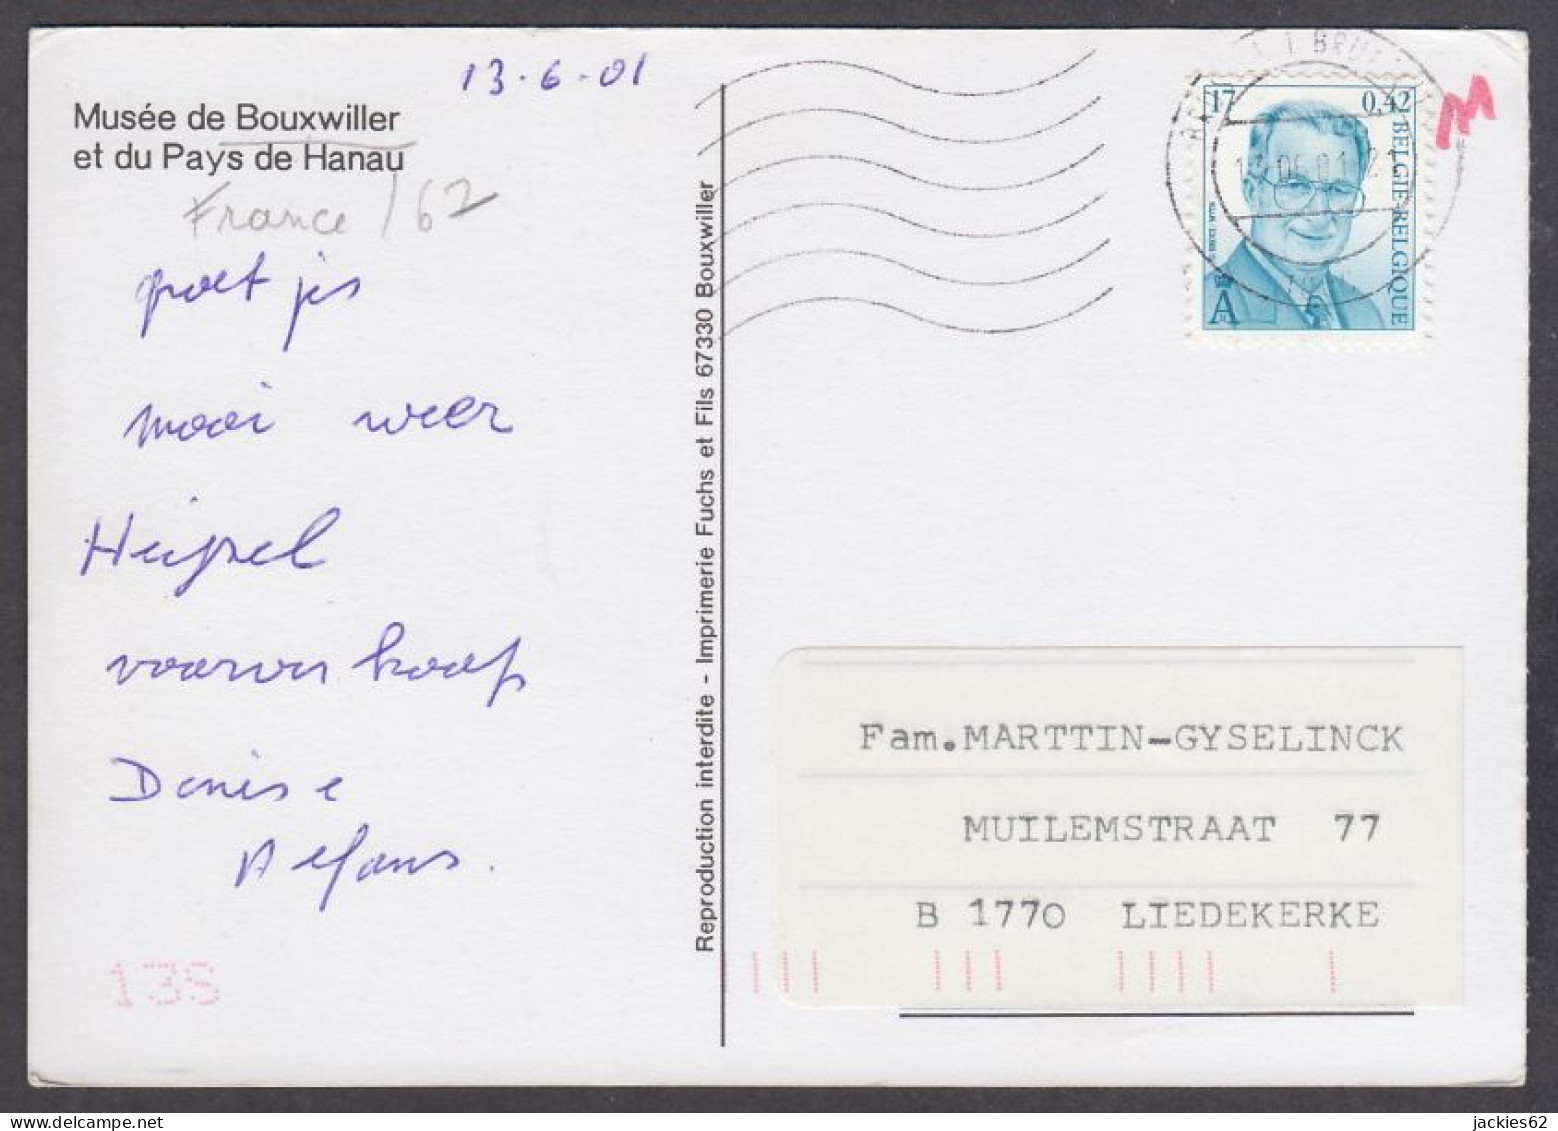 13.6.01
Musée de Bouxwiller
et du Pays de Hanau
France / 67
groetjes
mooi weer
Denise
Alfons.
13S
Reproduction interdite - Imprimerie Fuchs et Fils 67330 Bouxwiller
17 0,42
BELGIE-BELGIQUE
A
M
Fam.MARTTIN-GYSELINCK
MUILEMSTRAAT 77
B 1770 LIEDEKERKE
jackies62